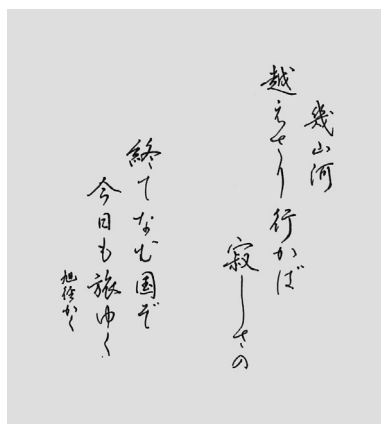 幾山河
越えさり行かば
寂しさの
終てなむ国ぞ
今日も旅ゆく
かく